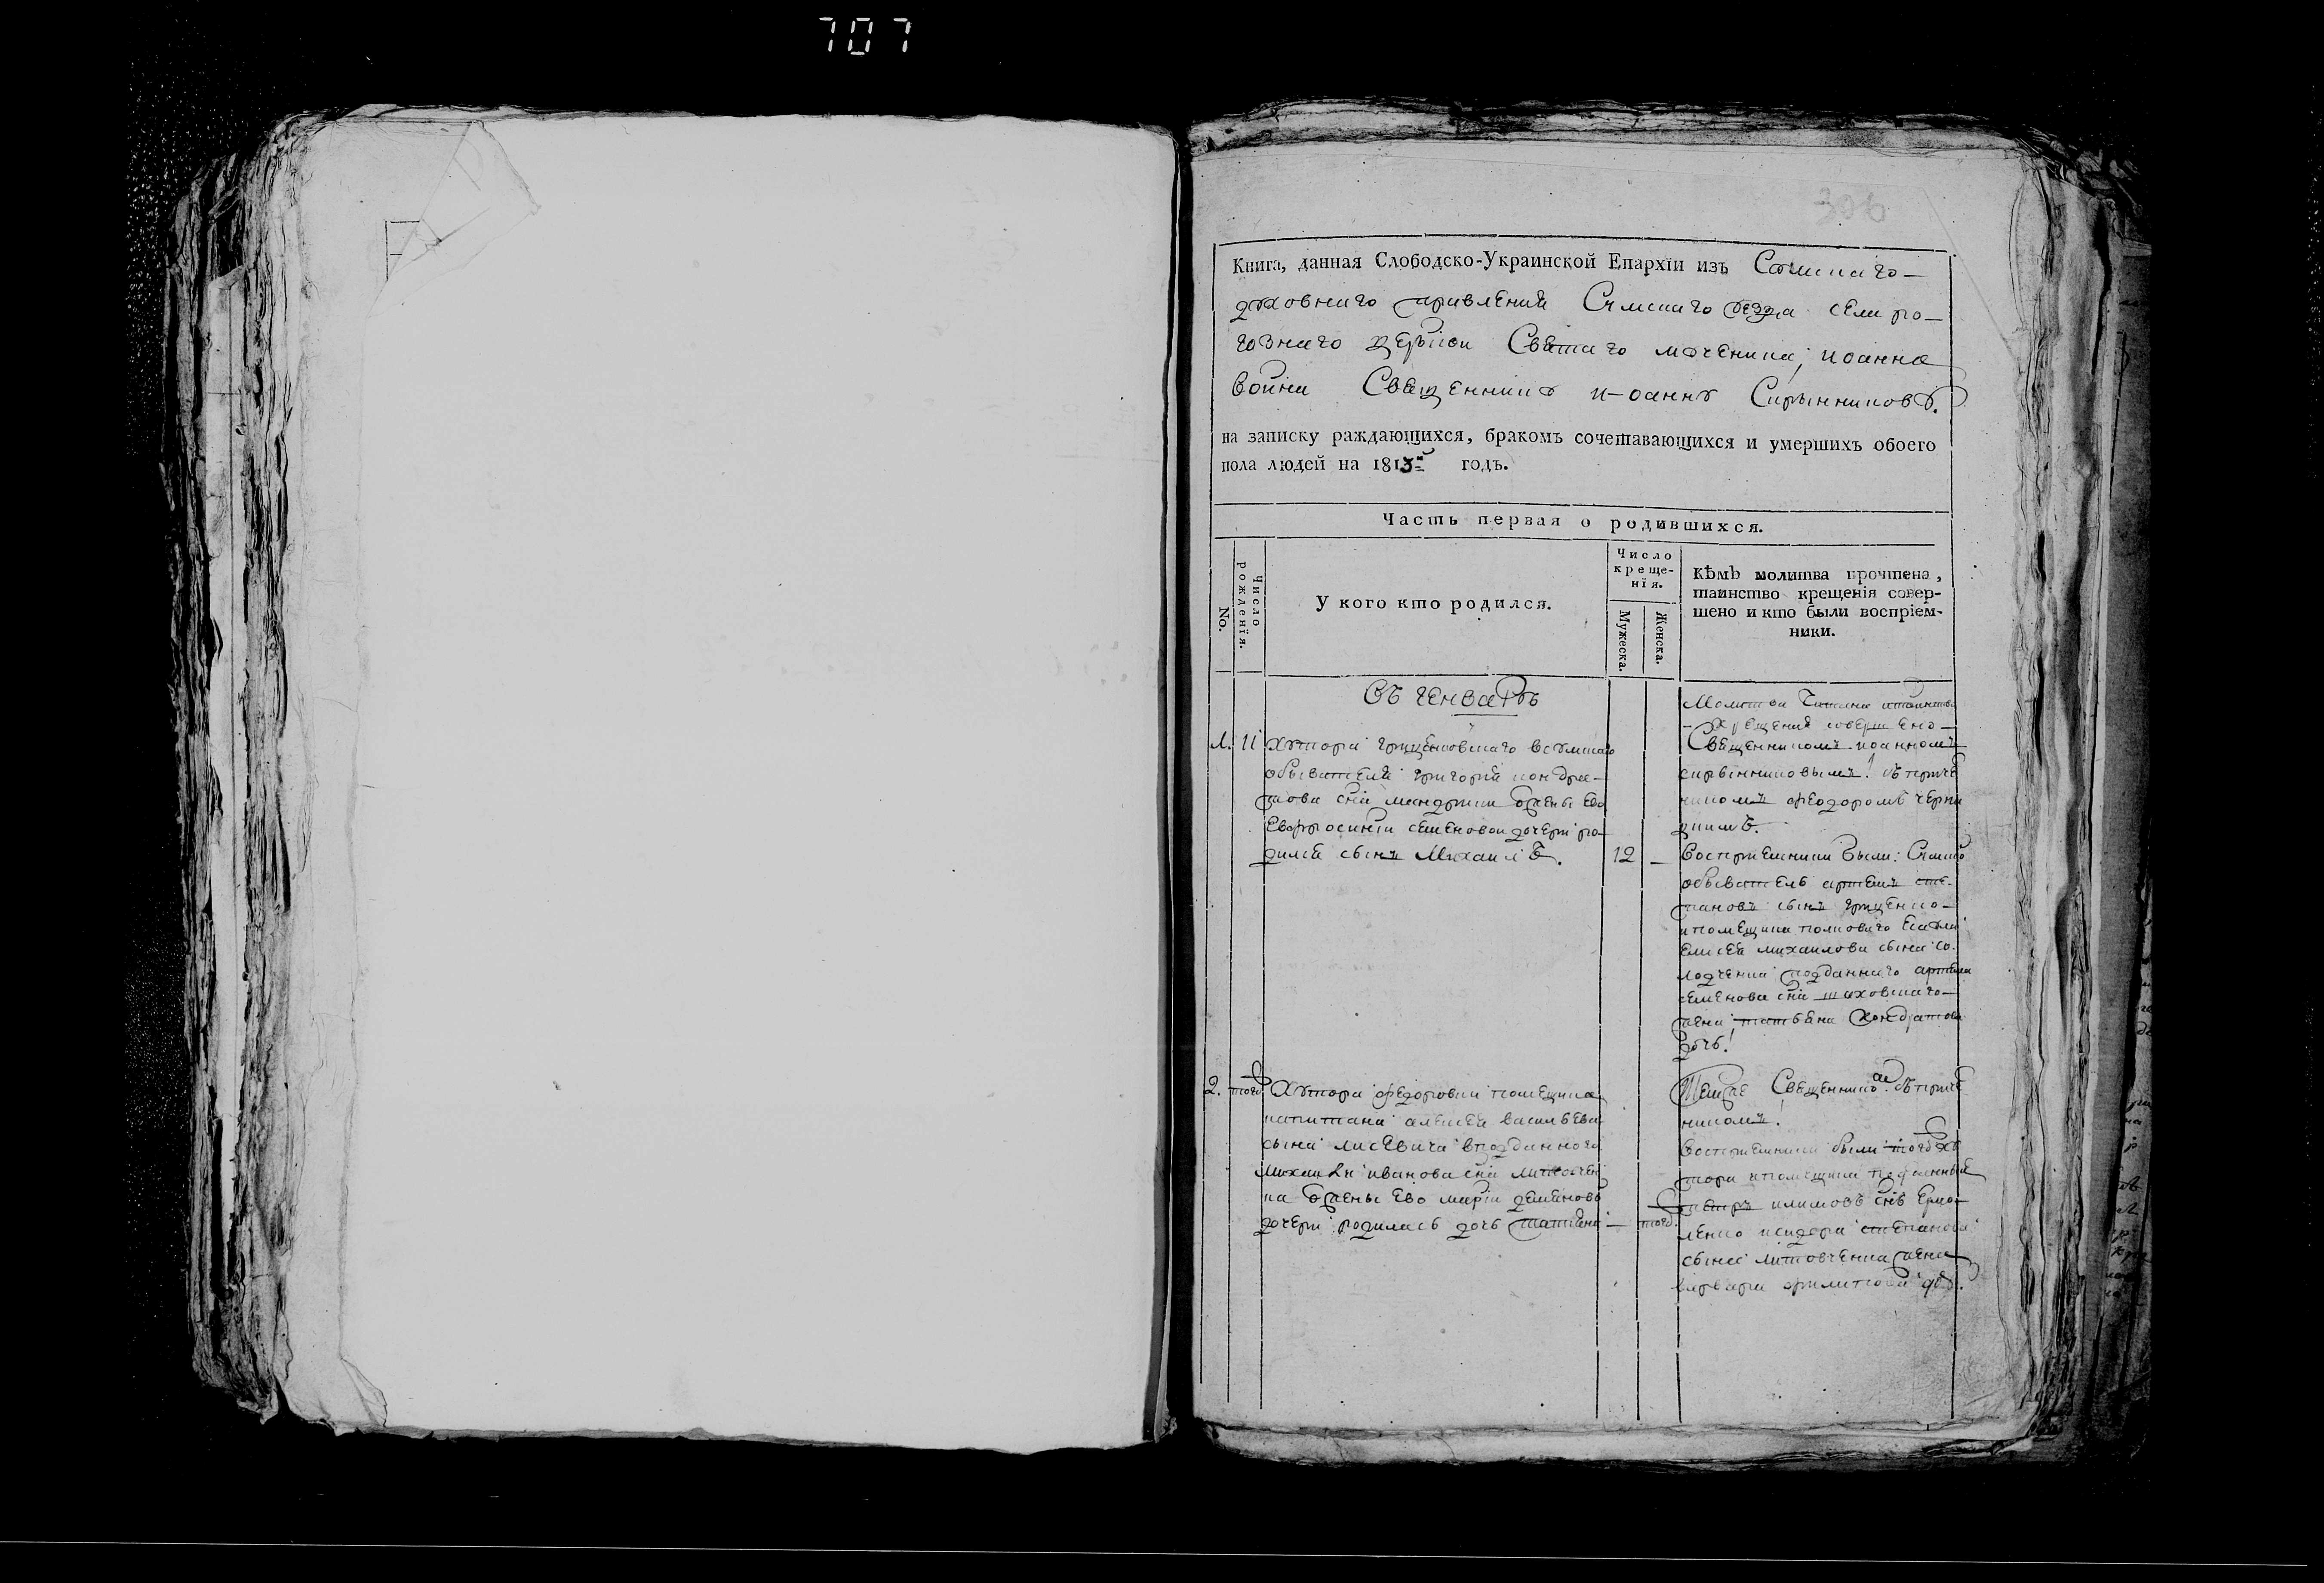 707
306
Книга, данная Слободско-Украинской Епархїи изъ Сумскаго
духовнаго правленія Сумскаго уезда села ро-
гознаго церкви Святаго мученика, иоанна
воина Священникъ иоаннъ Скрынниковъ.
на записку раждающихся, бракомъ сочетавающихся и умершихъ обоего
пола людей на 1813й годъ.
Часть первая о родившихся.
No.
Число рожденїя.
У кого кто родился.
Число креще-нїя.
Мужеска.
Женска.
Кѣмъ молитва прочтена,
таинство крещенія совер-
шено и кто были воспріем-
ники.
Въ генварѣ
1. 11 хутора грицковскаго
обывателя григорія кондра-
това сна жены ево
Евфросиніи семеновой дочери ро-
дился сынъ Михаилъ. 12 —
Молитва Читана итаинство
Крещения совершено
Священникомъ иоанномъ
скрынниковымъ съ приче
никомъ феодоромъ
Восприемники были:
обыватель артемъ сте-
пановъ сынъ гриценко
ипомещика полковаго Есаула
Елисея михаилова сына
подданнаго артема
семенова сна
жена татьяна Кондратова
дочь!
2. тогож Хутора федоровки помещика
капитана алексея васильева
сына лисевича вподданного
Михаила иванова сна литовчен
ка жены ево марїи
дочери родилась дочь татияна — тогож
Темже Священникомъ съ приче
никомъ!
Восприемники были тогож ху
тора ипомещика подданный
петръ климовъ снъ Ермо-
ленко исидора степанова
сына литовченка жена
варвара филипова